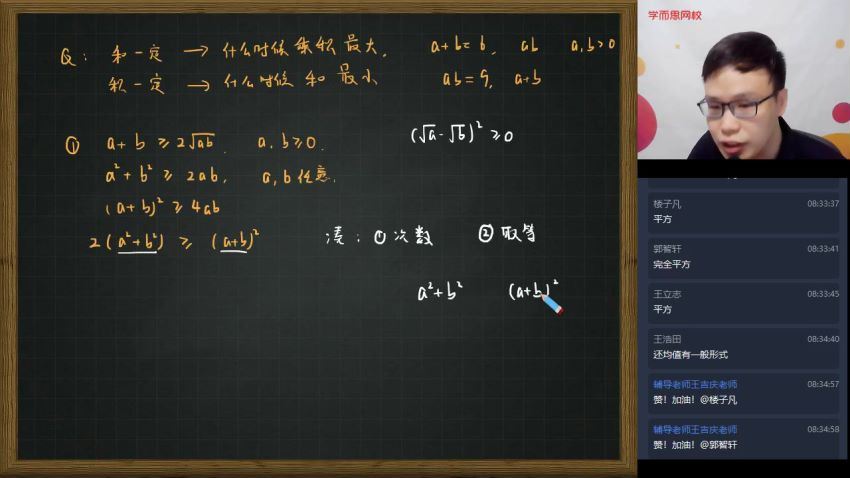 学而思网校
Q: 和一定 → 什么时候乘积最大, a+b=6, ab a,b>0
积一定 → 什么时候和最小 ab=9, a+b
① a+b ≥ 2√ab. a,b≥0. (√a-√b)² ≥0
a²+b² ≥ 2ab, a,b任意.
(a+b)² ≥ 4ab
2(a²+b²) ≥ (a+b)² 凑: ①次数 ②取等
a²+b² (a+b)²
08:33:37
楼子凡
平方
郭智轩 08:33:41
完全平方
王立志 08:33:45
平方
王浩田 08:34:40
还均值有一般形式
辅导老师王吉庆老师 08:34:57
赞！加油！@楼子凡
辅导老师王吉庆老师 08:34:58
赞！加油！@郭智轩